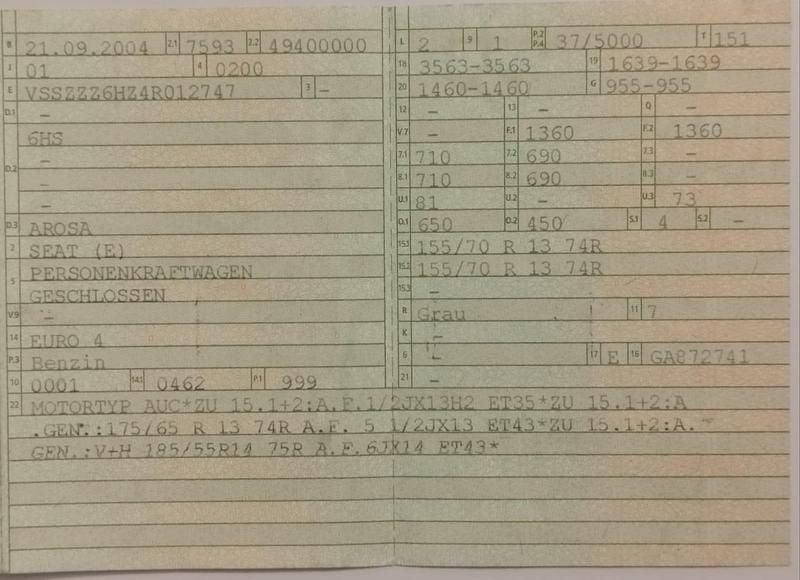 B 21.09.2004 2.1 7593 2.2 49400000
J 01 4 0200
E VSSZZZ6HZ4R012747 3 –
D.1 –
6HS
–
D.2 –
–
D.3 AROSA
2 SEAT (E)
5 PERSONENKRAFTWAGEN
GESCHLOSSEN
V.9 –
14 EURO 4
P.3 Benzin
10 0001 14.1 0462 P.1 999
L 2 9 1 P.2 P.4 37/5000 T 151
18 3563-3563 19 1639-1639
20 1460-1460 G 955-955
12 – 13 – Q –
V.7 – F.1 1360 F.2 1360
7.1 710 7.2 690 7.3 –
8.1 710 8.2 690 8.3 –
U.1 81 U.2 – U.3 73
O.1 650 O.2 450 S.1 4 S.2 –
15.1 155/70 R 13 74R
15.2 155/70 R 13 74R
15.3 –
R Grau 11 7
K –
6 – 17 E 16 GA872741
21 –
22 MOTORTYP AUC*ZU 15.1+2:A.F.1/2JX13H2 ET35*ZU 15.1+2:A
.GEN.:175/65 R 13 74R A.F. 5 1/2JX13 ET43*ZU 15.1+2:A.
GEN.:V+H 185/55R14 75R A.F.6JX14 ET43*